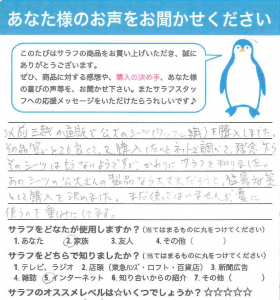 あなた様のお声をお聞かせください
このたびはサラフの商品をお買い上げいただき、誠に
ありがとうございます。
ぜひ、商品に対する感想や、購入の決め手、あなた様
の喜びの声等を、お聞かせ下さい。またサラフスタッ
フへの応援メッセージをいただけたらうれしいです♪
以前三越の通販で公大のシーツ(ワッフル織)を購入しました。
その品質がとても良くて、購入したいとネットで調べて、残念ながら
そのシーツはもうないようですが、かわりにサラフを知りました。
あのシーツの公大さんの製品なら大丈夫だろうと、猛暑対策
として購入を決めました。まだ使ってはいませんが夏に
使うのを楽しみにしてます。
サラフをどなたが使用しますか?(当てはまるものに丸をつけてください)
1.あなた 2.家族 3.友人 4.その他( )
サラフをどちらで知りましたか?(当てはまるものに丸をつけてください)
1.テレビ、ラジオ 2.店頭(東急ハンズ・ロフト・百貨店) 3.新聞広告
4.雑誌 5.インターネット 6.知り合いからの紹介 7.その他( )
サラフのオススメレベルは☆いくつでしょうか?☆☆☆☆☆